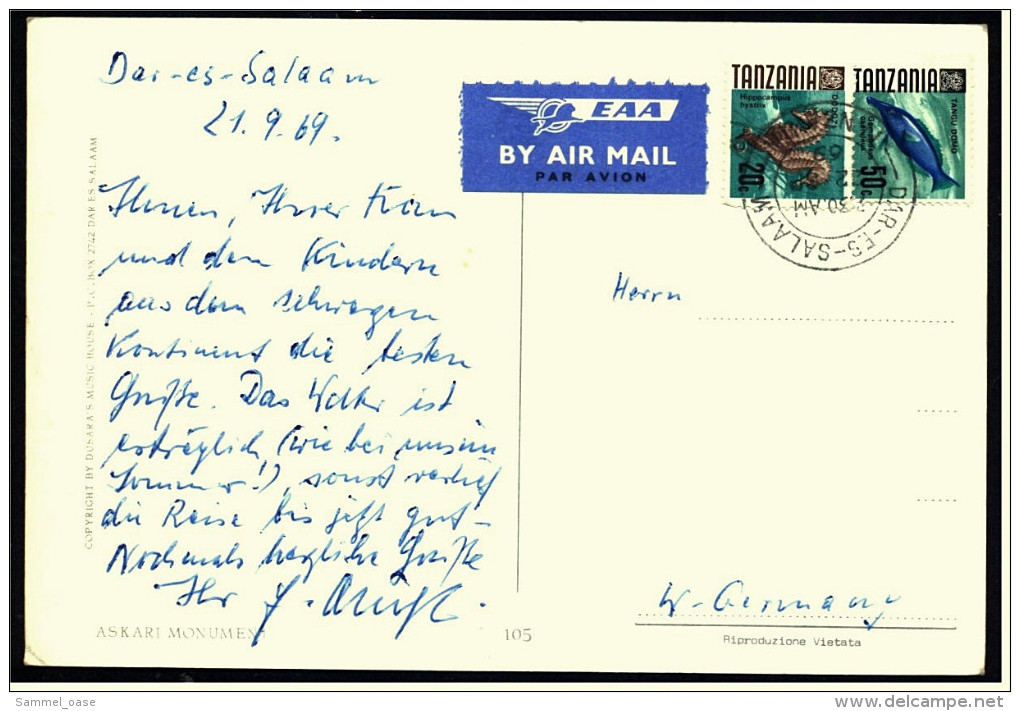 Dar-es-Salaam
21.9.69.
Ihnen, Ihrer Frau
und den Kindern
aus dem schwarzen
Kontinent die besten
Grüße. Das Wetter ist
erträglich, (wie bei unserm
Sommer!), sonst verlief
die Reise bis jetzt gut-
Nochmals herzliche Grüße
Ihr
ASKARI MONUMENT
105
COPYRIGHT BY DUSARA'S MUSIC HOUSE - P.O. BOX 2742 DAR ES SALAAM
EAA
BY AIR MAIL
PAR AVION
TANZANIA
Hippocampus
hystrix
20c
TANZANIA
TANGU DOMO
50c
DAR-ES-SALAAM
30 AM
Herrn
W-Germany
Riproduzione Vietata
Sammel_oase
www.delcampe.net